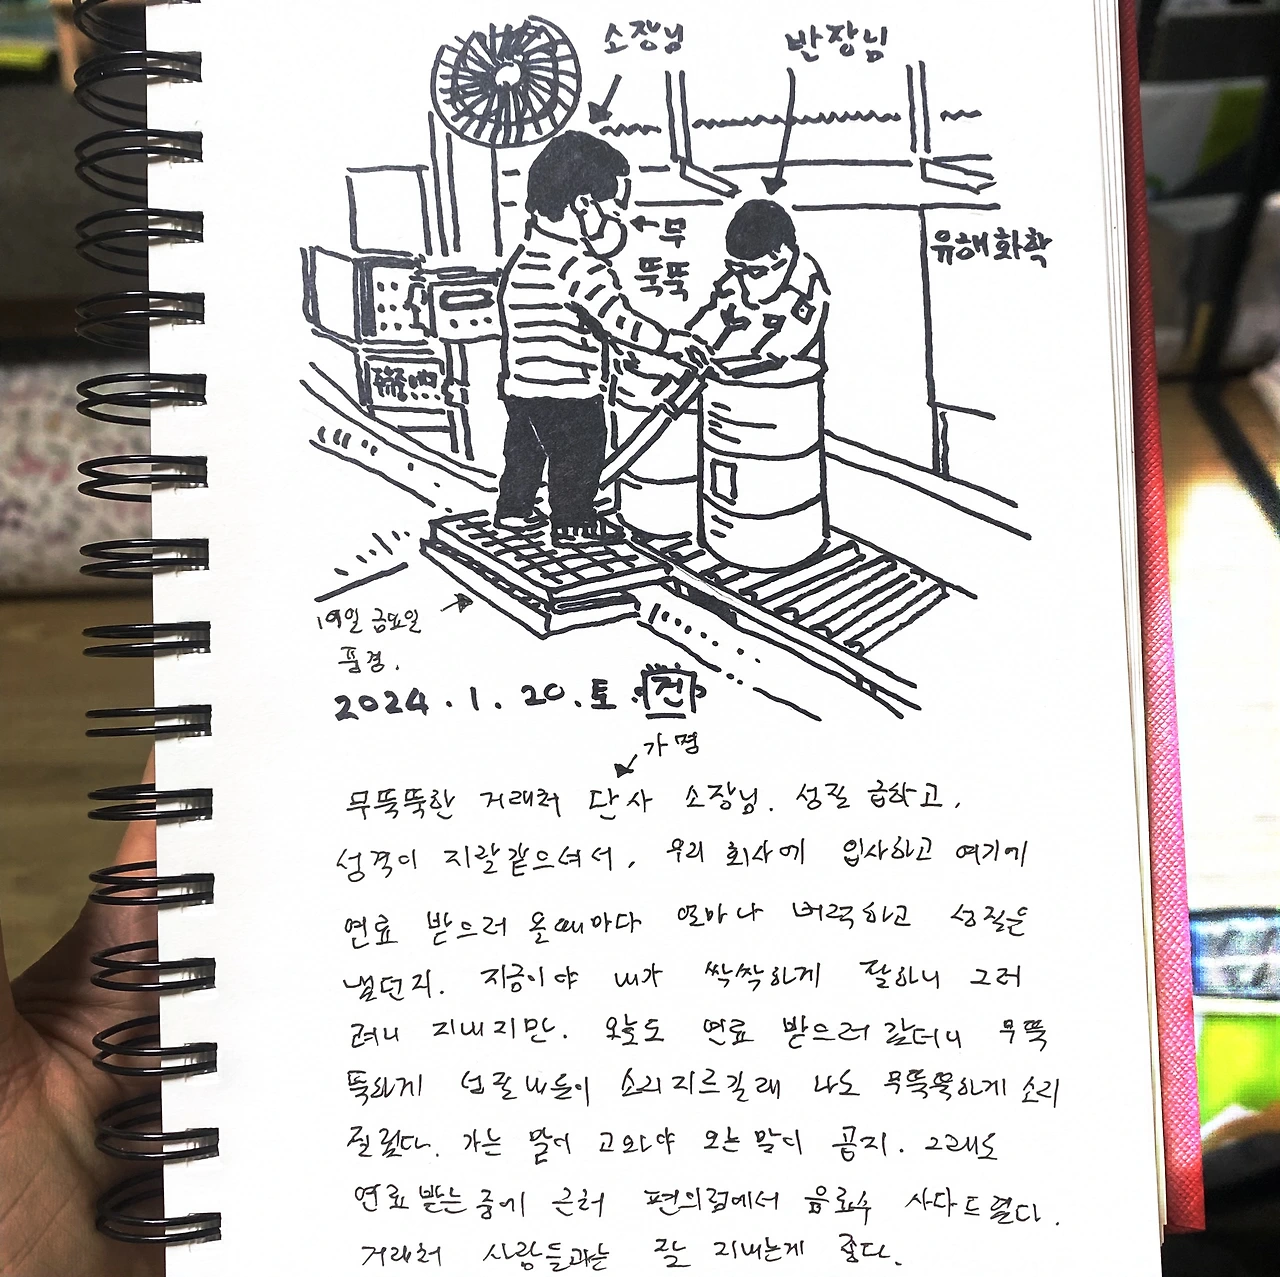 소장님
반장님
무
뚝뚝
유해화학
19일 금요일
풍경.
2024.1.20.토 전
가명
무뚝뚝한 거래처 단사 소장님. 성질 급하고,
성격이 지랄같으셔서, 우리 회사에 입사하고 여기에
연료 받으러 올때마다 얼마나 버럭하고 성질을
낼던지. 지금이야 내가 싹싹하게 잘하니 그러
려니 지내지만. 오늘도 연료 받으러 갔더니 무뚝
뚝하게 성질내듯이 소리지르길래 나도 무뚝뚝하게 소리
질렀다. 가는 말이 고와야 오는 말이 곱지. 그래도
연료 받는 중에 근처 편의점에서 음료수 사다드렸다.
거래처 사람들과는 잘 지내는게 좋다.